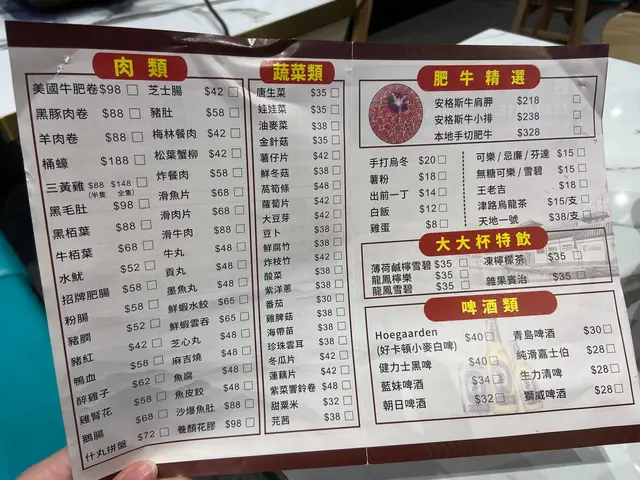 肉類
美國牛肥卷 $98
黑豚肉卷 $88
羊肉卷 $88
桶蠔 $188
三黃雞 $88 $148
(半隻) (全隻)
黑毛肚 $98
黑栢葉 $88
牛栢葉 $68
水魷 $52
招牌肥腸 $58
粉腸 $58
豬膶 $52
豬紅 $42
鴨血
醉雞子 $62
雞腎花 $58
鵝腸 $68
什丸拼盤 $72
芝士腸 $42
豬肚 $58
梅林餐肉 $42
松葉蟹柳 $42
炸餐肉 $58
滑魚片 $68
滑肉片 $68
滑牛肉 $88
牛丸 $48
貢丸 $48
墨魚丸 $48
鮮蝦水餃 $65
鮮蝦雲吞 $65
芝心丸 $48
麻吉燒 $48
魚腐 $48
魚皮餃 $48
沙爆魚肚 $88
養顏花膠 $98
蔬菜類
唐生菜 $35
娃娃菜 $35
油麥菜 $38
金針菇 $35
薯仔片 $42
鮮冬菇 $38
萵筍條 $48
蘿蔔片 $42
大豆芽 $42
豆卜 $38
鮮腐竹 $38
炸枝竹 $42
酸菜 $38
紫洋蔥 $38
番茄 $30
雞脾菇 $38
海帶苗 $38
珍珠雲耳 $38
冬瓜片 $42
蓮藕片 $42
紫菜響鈴卷 $48
甜粟米 $32
芫茜 $38
肥牛精選
安格斯牛肩胛 $218
安格斯牛小排 $238
本地手切肥牛 $328
手打烏冬 $20
薯粉 $18
出前一丁 $14
白飯 $12
雞蛋 $8
可樂/忌廉/芬達 $15
無糖可樂/雪碧 $15
王老吉 $18
津路烏龍茶 $15/支
天地一號 $38/支
大大杯特飲
薄荷鹹檸雪碧 $35
龍鳳檸樂
龍鳳雪碧 $35
凍檸檬茶 $35
雜果賓治 $35
啤酒類
Hoegaarden
(好卡頓小麥白啤) $40
健力士黑啤 $40
藍妹啤酒 $34
朝日啤酒 $32
青島啤酒 $30
純滑嘉士伯 $28
生力清啤 $28
獅威啤酒 $28